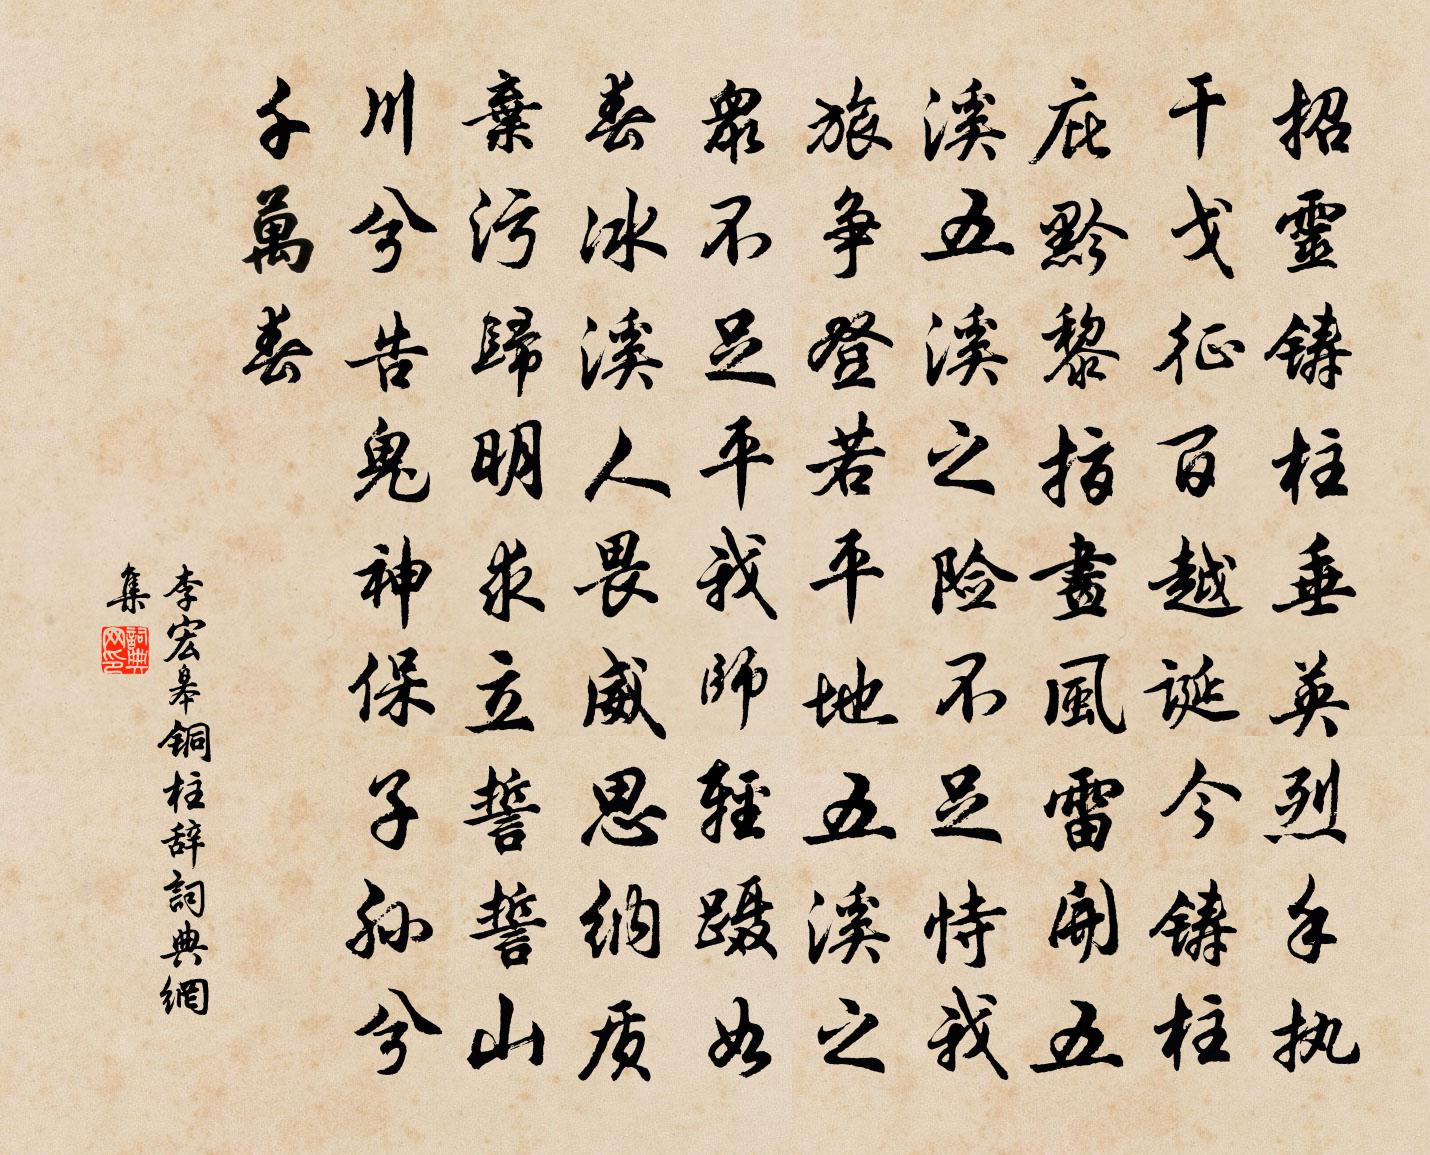 招靈鑄柱垂英烈手执
干戈征百越誕今鑄柱
庇黔黎指畫風雷開五
溪五溪之险不足恃我
旅争登若平地五溪之
眾不足平我師輕蹑如
春冰溪人畏威思纳质
棄污歸明求立誓誓山
川兮告鬼神保子孙兮
千萬春
李宏皋銅柱辞詞典網
集
詞典网印